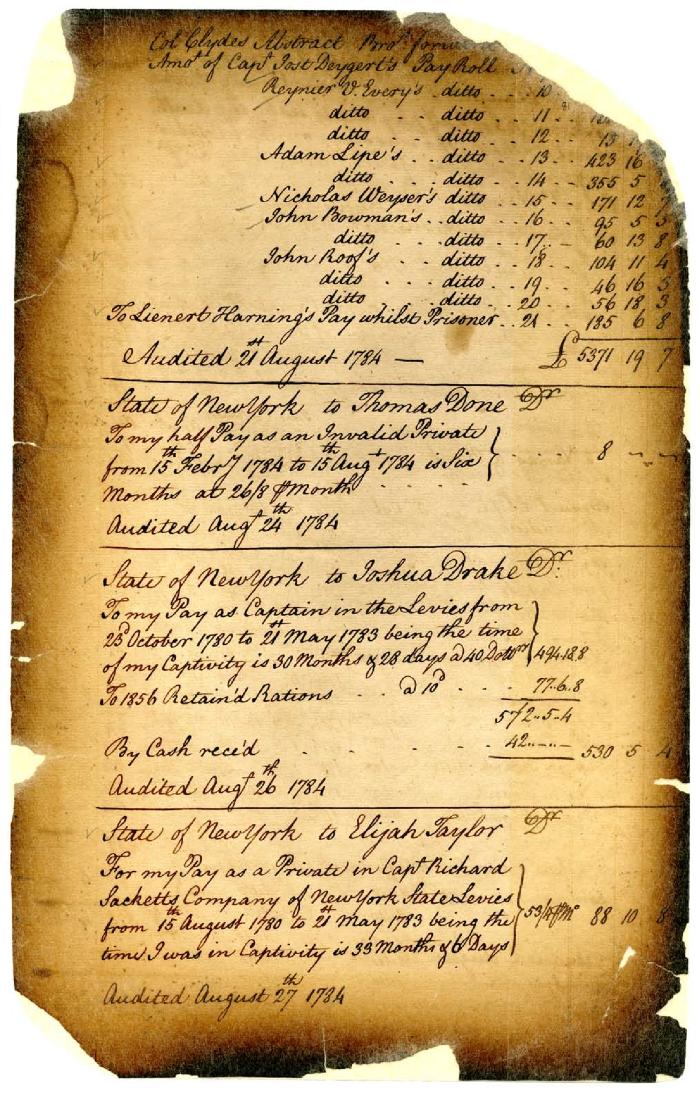 Col Clydes Abstract Bro.t forw
Amo.t of Capt Jost Deygert's Pay Roll
Reynier V. Every's ditto . . 10
ditto . . ditto . . 11
ditto . . ditto . . 12 . . 13
Adam Lipe's . . ditto . . 13 . . 423 16
ditto . . ditto . . 14 . . 355 5
Nicholas Weyser's ditto . . 15 . . 171 12 7
John Bowman's . . ditto . . 16 . . 95 5 5
ditto . . . ditto . . 17 . . 60 13 8
John Roof's . . ditto . . 18 . . 104 11 4
ditto . . . ditto . . 19 . . 46 16 5
ditto . . ditto . . 20 . . 56 18 3
To Lienert Harning's Pay whilst Prisoner . . 21 . . 185 6 8
Audited 21st August 1784 — £ 5371 19 7
State of New York to Thomas Done Dr
To my half Pay as an Invalid Private
from 15th Febry 1784 to 15th Augt 1784 is Six . . . . 8 " "
Months at 26/8 ⅌ Month
Audited Augt 24th 1784
State of New York to Joshua Drake Dr.
To my Pay as Captain in the Levies from
23d October 1780 to 21st May 1783 being the time
of my Captivity is 30 Months & 28 days @ 40 Dolrs 494.18.8
To 1856 Retain'd Rations . . @ 10d . . . 77.6.8
572..5.4
By Cash rece'd . . . . . 42..-..- 530 5 4
Audited Augt 26th 1784
State of New York to Elijah Taylor Dr
For my Pay as a Private in Capt Richard
Sacketts Company of New York State Levies
from 15th August 1780 to 21st May 1783 being the 53/4 ⅌ Mo 88 10 8
time I was in Captivity is 33 Months & 6 Days
Audited August 27th 1784